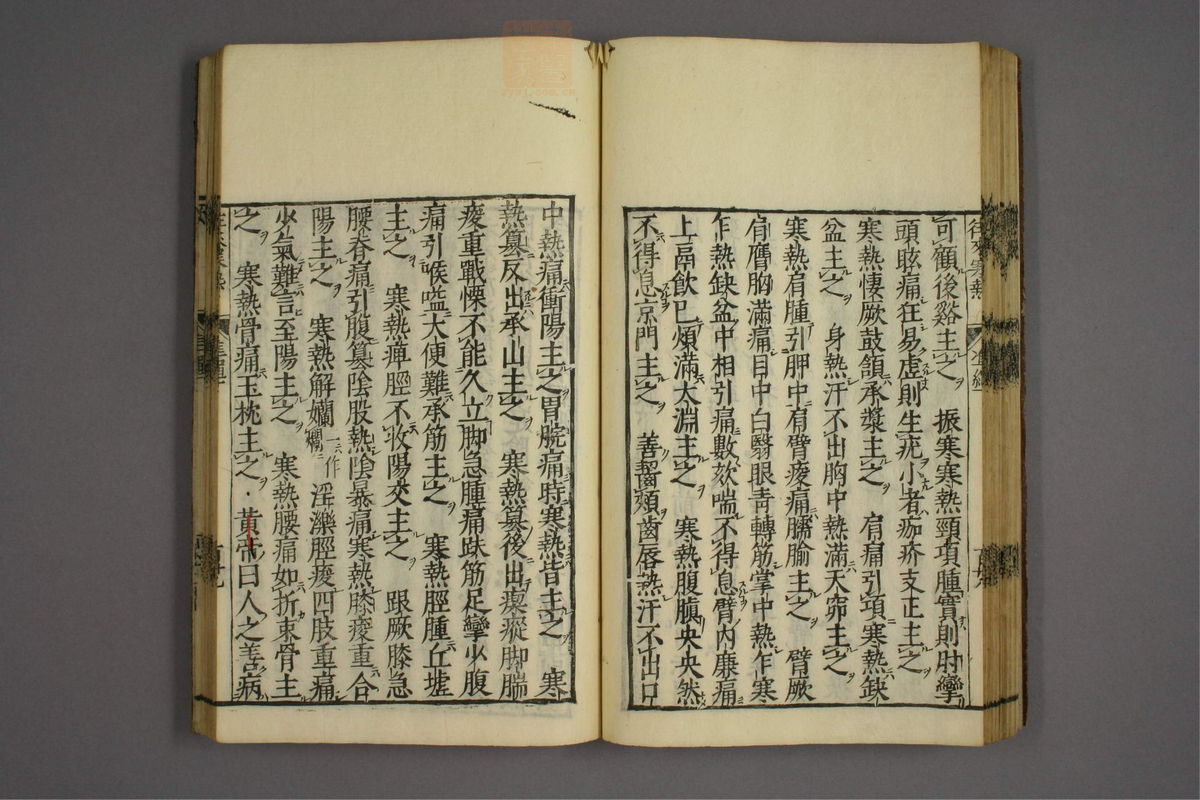 可顧後谿主之 振寒寒熱頸項腫實則肘攣
頭眩痛狂易虛則生疣小者痂疥支正主之
寒熱悽厥鼓頷承漿主之 肩痛引項寒熱缺
盆主之 身熱汗不出胸中熱滿天窌主之
寒熱肩腫引胛中肩臂痠痛臑腧主之 臂厥
肩膺胸滿痛目中白翳眼青轉筋掌中熱乍寒
乍熱缺盆中相引痛數欬喘不得息臂內廉痛
上鬲飲巳煩滿太淵主之 寒熱腹䐜央央然
不得息京門主之 善齧頰齒唇熱汗不出口
中熱痛衝陽主之胃脘痛時寒熱皆主之 寒
熱篡反出承山主之 寒熱篡後出瘈瘲脚腨
痠重戰慄不能久立脚急腫痛趺筋足攣少腹
痛引喉嗌大便難承筋主之 寒熱脛腫丘墟
主之 寒熱痺脛不收陽交主之 跟厥膝急
腰脊痛引腹篡陰股熱陰暴痛寒熱膝痠重合
陽主之 寒熱解爛一作㿔淫濼脛痠四肢重痛
少氣難言至陽主之 寒熱腰痛如折束骨主
之 寒熱骨痛玉枕主之 黃帝曰人之善病